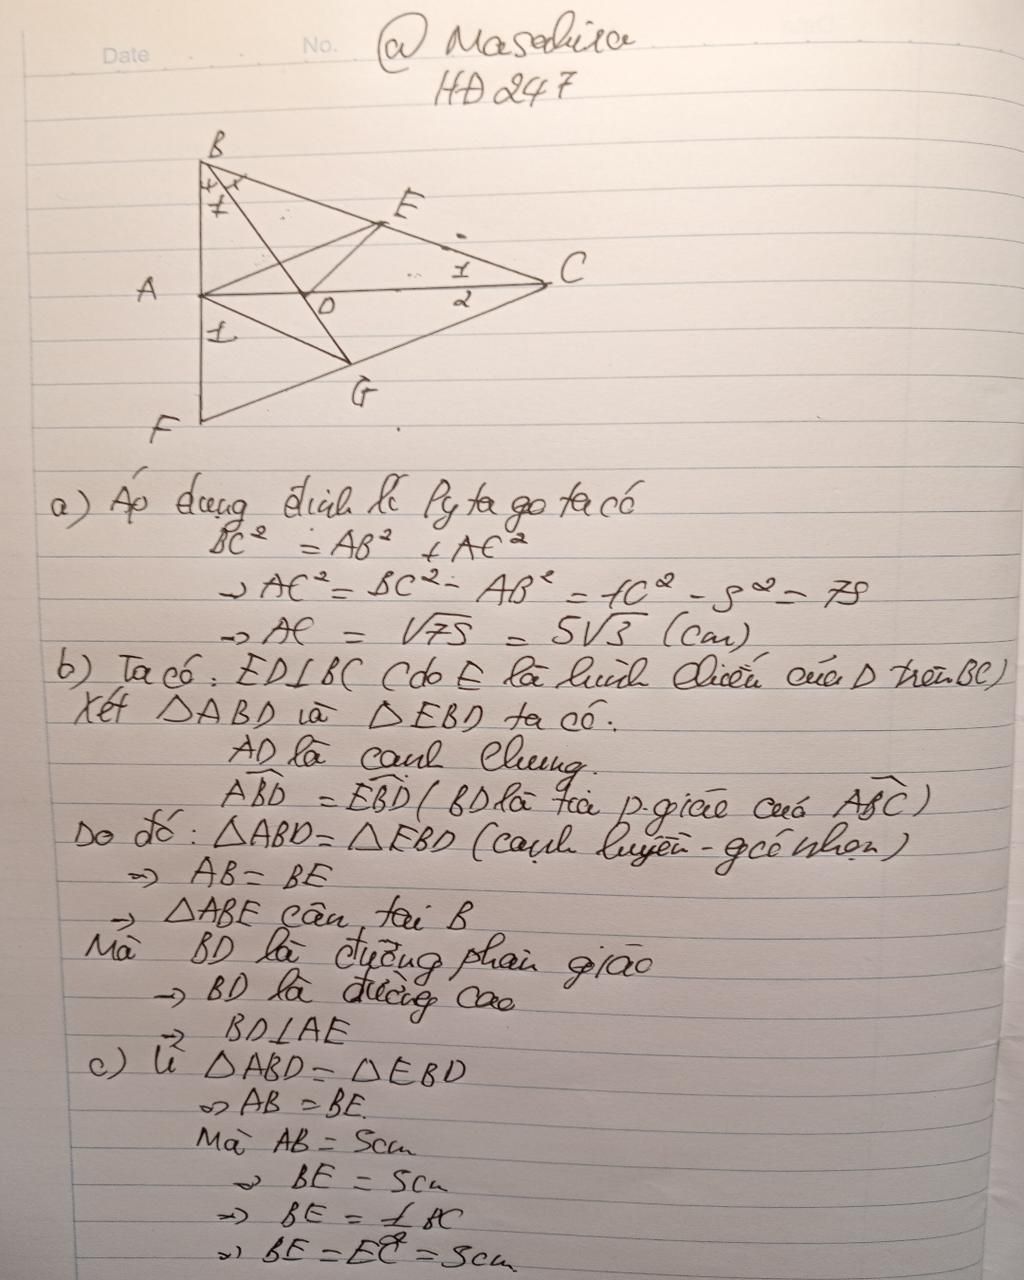 Date
No.
@ Masahira
HĐ 247
B
1
E
1
C
A
D
2
1
G
F
a) Áp dụng định lí Pytago ta có
BC² = AB² + AC²
→ AC² = BC² - AB² = 10² - 5² = 75
→ AC = √75 = 5√3 (cm)
b) Ta có: ED⊥BC (do E là hình chiếu của D trên BC)
Xét △ABD và △EBD ta có:
AD là cạnh chung.
ABD = EBD (BD là tia p.giác của ABC)
Do đó: △ABD = △EBD (cạnh huyền - góc nhọn)
=> AB = BE
→ △ABE cân tại B
Mà BD là đường phân giác
→ BD là đường cao
→ BD⊥AE
c) Vì △ABD = △EBD
=> AB = BE
Mà AB = 5cm
→ BE = 5cm
=> BE = 1/2 BC
=> BE = EC = 5cm